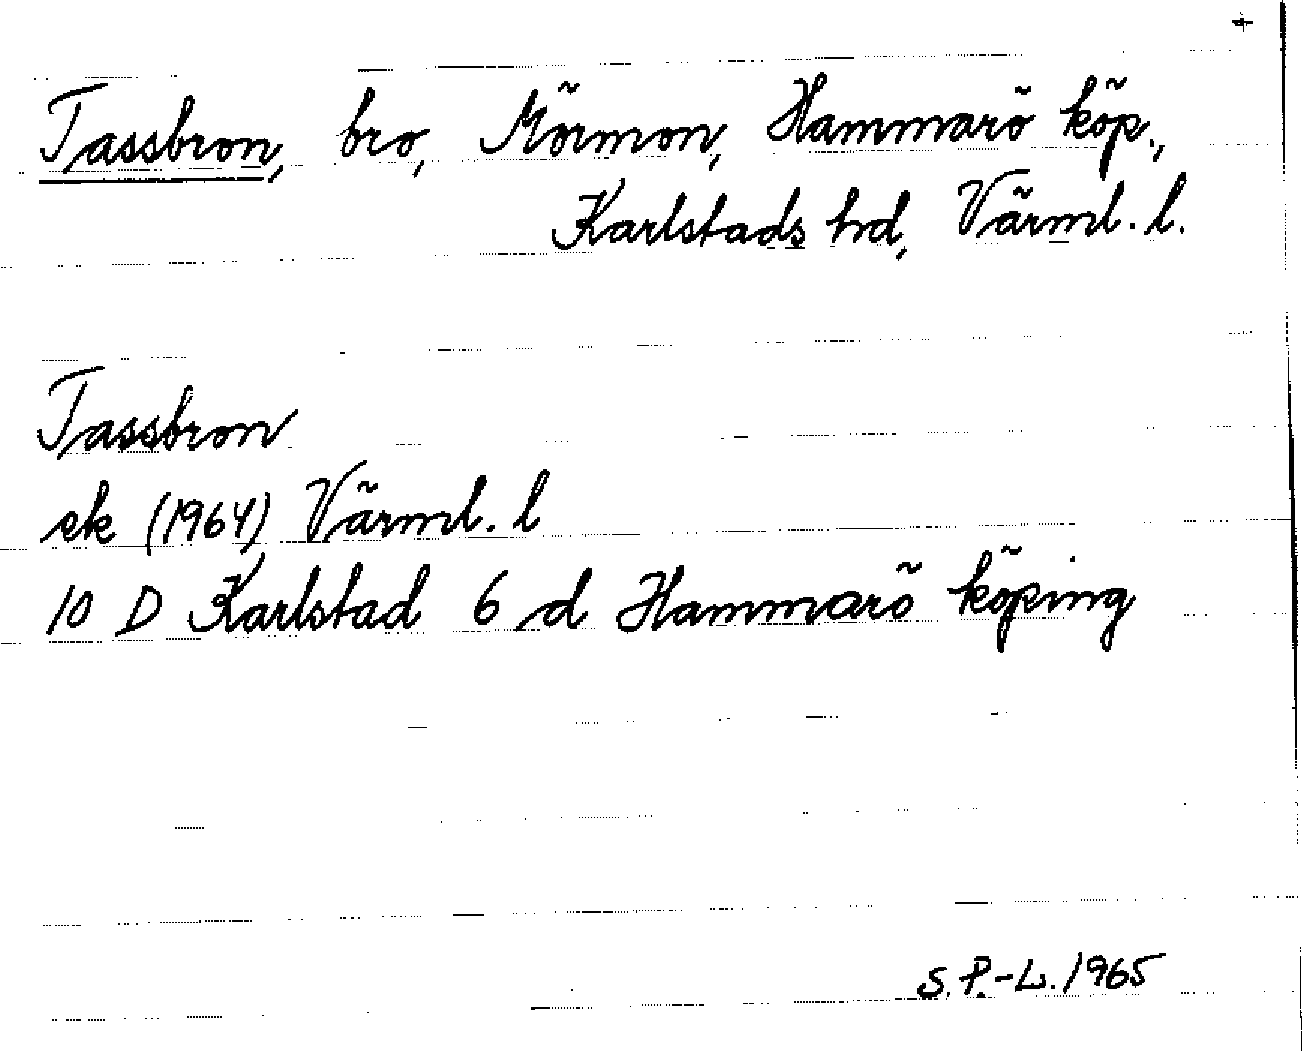 Tassbron, bro, Mörmon, Hammarö köp.,
Karlstads hd, Värml. l.
Tassbron
ek (1964) Värml. l
10 D Karlstad 6 d Hammarö köping
S. P.-L. 1965